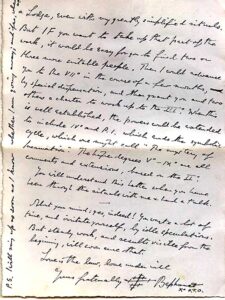 Lodge, even with my greatly simplified rituals.
But IF you want to take up that part of the
work, it would be easy for you to find two or
three more suitable people. Then I would advance
you to the VII° in the course of a few months,
by special dispensation, and then grant you and two
others a charter to work up to the III°. When this
is well established, the powers will be extended
to include IV° and P.I. which ends the symbolic
cycle, which one might call "The mystery of
Incarnation." The higher degrees V° - IX° are all
comments and extensions, based on the III°.
You will understand this letter when you have
been through the rituals with me and
About your mind; yes, indeed! You write a lot of
and irritate yourself, by idle speculations.
But steady work, and results visible from the
beginning, will soon cure that.
Love is the law, love under will.
Yours fraternally Baphomet
X° O.T.O.
P.S. Will ring up as soon as I know whether I am going away; and if so when